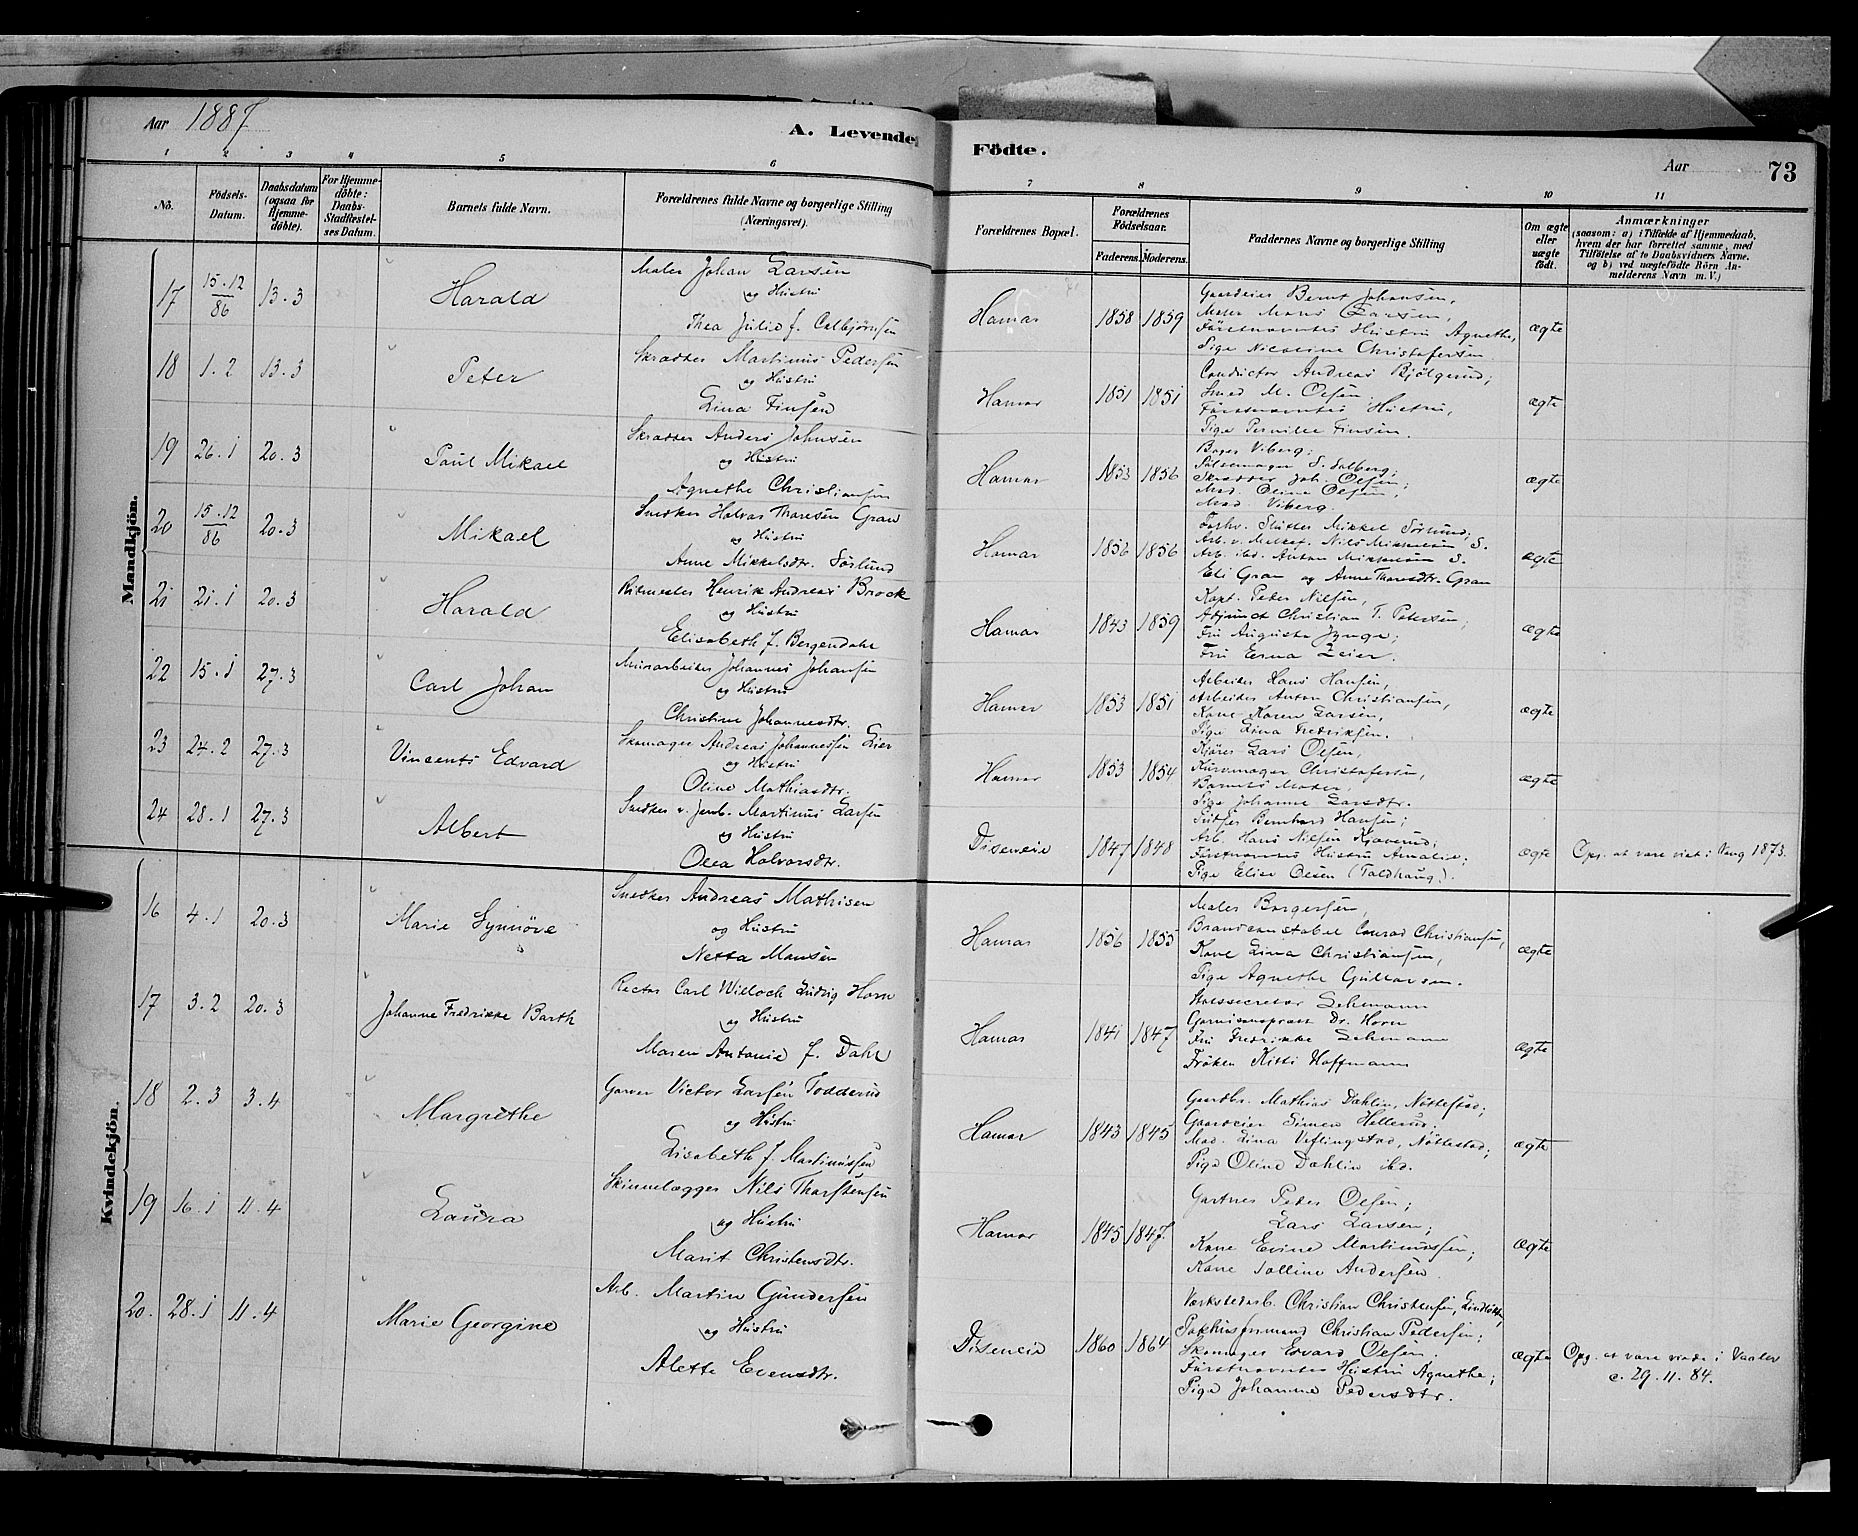 Aar 1887
A. Levende
Födte.
Aar
73
1 2 3 4 5 6 7 8 9 10 11
No.
Födsels-Datum.
Daabsdatum (ogsaa for Hjemme-döbte).
For Hjemme-döbte: Daabs-Stadfæstel-ses Datum.
Barnets fulde Navn.
Forældrenes fulde Navne og borgerlige Stilling (Næringsvei).
Forældrenes Bopæl.
Forældrenes Födselsaar.
Faderens. Moderens.
Faddernes Navne og borgerlige Stilling
Om ægte eller uægte födt.
Anmærkninger
(saasom: a) i Tilfælde af Hjemmedaab,
hvem der har forrettet samme, med
Tilföielse af to Daabsvidners Navne.
og b) ved uægtefödte Börn An-
melderens Navn m. V.)
Mandkjön.
17 15.12/86 13.3 Harald
Maler Johan Larsen
og Hustru
Thea Julie f. Calbjörnsen
Hamar 1858 1859
Gaardeier Bernt Johansen,
Maler Hans Larsen,
Förstnævntes Hustru Agnethe,
Pige Nicoline Christofersen
ægte
18 1.2 13.3 Peter
Skrædder Martinus Pedersen
og Hustru
Lina Finsen
Hamar 1851 1851
Conductor Andreas Bjölgerud;
Smed M. Olsen
Förstnævntes Hustru,
Pige Pernille Finsen.
ægte
19 26.1 20.3 Paul Mikael
Skrædder Anders Johnsen
og Hustru
Agnethe Christiansen
Hamar 1853 1856
Bager Viberg;
Pölsemager S. Solberg;
Skrædder Joh. Olsen;
Mad. Oline Olsen,
Mad. Viberg.
ægte
20 15.12/86 20.3 Mikael
Snedker Halvor Thoresen Gran
og Hustru
Anne Mikkelsdtr. Sörlund
Hamar 1856 1856
Forhv. Slutter Mikkel Sörlund;
Arb. v. Melkef. Nils Mikkelsen S.
Arb. ibd. Anton Mikkelsen S.
Eli Gran og Anne Thoresdtr. Gran
ægte
21 21.1 20.3 Harald
Ritmester Henrik Andreas Brock
og Hustru
Elisabeth f. Bergendahl
Hamar 1843 1859
Kapt. Peter Nilsen,
Adjunct Christian T. Petersen;
Fru Augusta Jynge;
Fru Erma Zeier.
ægte
22 15.1 27.3 Carl Johan
Murarbeider Johannes Johansen
og Hustru
Christine Johannesdtr.
Hamar 1853 1851
Arbeider Hans Hansen,
Arbeider Anton Christiansen,
Kone Karen Larsen,
Pige Lina Fredriksen.
ægte
23 24.2 27.3 Vincents Edvard
Skomager Andreas Johannessen Lier
og Hustru
Oline Mathiasdtr.
Hamar 1853 1854
Kjörer Lars Olsen,
Kurvmager Christofersen,
Barnets Moder,
Pige Johanne Larsdtr.
ægte
24 28.1 27.3 Albert
Snedker v. Jernb. Martinus Larsen
og Hustru
Olea Halvorsdtr.
Diseneie 1847 1848
Pudser Bernhard Hansen;
Arb. Hans Nilsen Kjoverud;
Förstnævntes Hustru Amalie;
Pige Elise Olsen (Toldhaug).
ægte
Opg. at være viet i Vang 1873.
Kvindekjön.
16 4.1 20.3 Marie Synnöve
Snedker Andreas Mathisen
og Hustru
Netta Monsen
Hamar 1856 1855
Maler Borgersen,
Brandconstabel Conrad Christiansen,
Kone Lina Christiansen,
Pige Agnethe Gullovsen.
ægte
17 3.2 20.3 Johanne Fredrikke Barth
Rector Carl Willoch Ludvig Horn
og Hustru
Maren Antonie f. Dahl
Hamar 1841 1847
Sehmann
Garnisonsprest Dr. Horn
Fru Fredrikke Sehmann
Fröken Kitti Hoffmann
ægte
18 2.3 3.4 Margrethe
Garver Victor Larsen Todderud
og Hustru
Lisabeth f. Martinussen
Hamar 1843 1845
Gaardbr. Mathias Dæhlin, Nöttestad;
Gaardeier Simen Hellerud;
Mad. Lina Veflingstad, Nöttestad;
Pige Oline Dæhlin ibd.
ægte
19 16.1 11.4 Laura
Skindelægger Nils Thorstensen
og Hustru
Marit Christensdtr.
Hamar 1845 1847.
Gartner Peder Olsen;
Lars Larsen;
Kone Evine Martinussen;
Kone Golline Andersen.
ægte
20. 28.1 11.4 Marie Georgine
Arb. Martin Gundersen
og Hustru
Alette Evensdtr.
Diseneie 1860 1864
Værkstedarb. Christian Christensen,
Pakhusformand Christian Pedersen;
Skomager Edvard Olsen;
Förstnævntes Hustru Agnethe;
Pige Johanne Pedersdtr.
ægte
Opg. at være viede i Vaaler
c. 29.11.84.